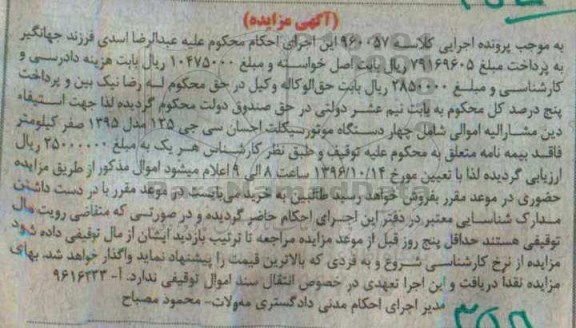 (آگهی مزایده)
به موجب پرونده اجرایی کلاسه ۹۶۰۰۵۷ این اجرای احکام محکوم علیه عبدالرضا اسدی فرزند جهانگیر
به پرداخت مبلغ ۷۹۱۶۹۶۰۵ ریال بابت اصل خواسته و مبلغ ۱۰۴۷۵۰۰۰ ریال بابت هزینه دادرسی و
کارشناسی و مبلغ ۲۸۵۰۰۰۰ ریال بابت حق‌الوکاله وکیل در حق محکوم له رضا نیک بین و پرداخت
پنج درصد کل محکوم به بابت نیم عشر دولتی در حق صندوق دولت محکوم گردیده لذا جهت استیفاء
دین مشارالیه اموالی شامل چهار دستگاه موتورسیکلت احسان سی جی ۱۲۵ مدل ۱۳۹۵ صفر کیلومتر
فاقد بیمه نامه متعلق به محکوم علیه توقیف و طبق نظر کارشناس هر یک به مبلغ ۲۵۰۰۰۰۰۰ ریال
ارزیابی گردیده لذا با تعیین مورخ ۱۳۹۶/۱۰/۱۴ ساعت ۸ الی ۹ اعلام میشود اموال مذکور از طریق مزایده
حضوری در موعد مقرر بفروش خواهد رسید طالبین به خرید می‌بایست در موعد مقرر با در دست داشتن
مدارک شناسایی معتبر در دفتر این اجرای احکام حاضر گردیده و در صورتی که متقاضی رویت مال
توقیفی هستند حداقل پنج روز قبل از موعد مزایده مراجعه تا ترتیب بازدید ایشان از مال توقیفی داده شود
مزایده از نرخ کارشناسی شروع و به فردی که بالاترین قیمت را پیشنهاد نماید واگذار خواهد شد. بهای
مزایده نقداً دریافت و این اجرا تعهدی در خصوص انتقال سند اموال توقیفی ندارد. آ- ۹۶۱۶۲۳۳
مدیر اجرای احکام مدنی دادگستری مه‌ولات- محمود مصباح